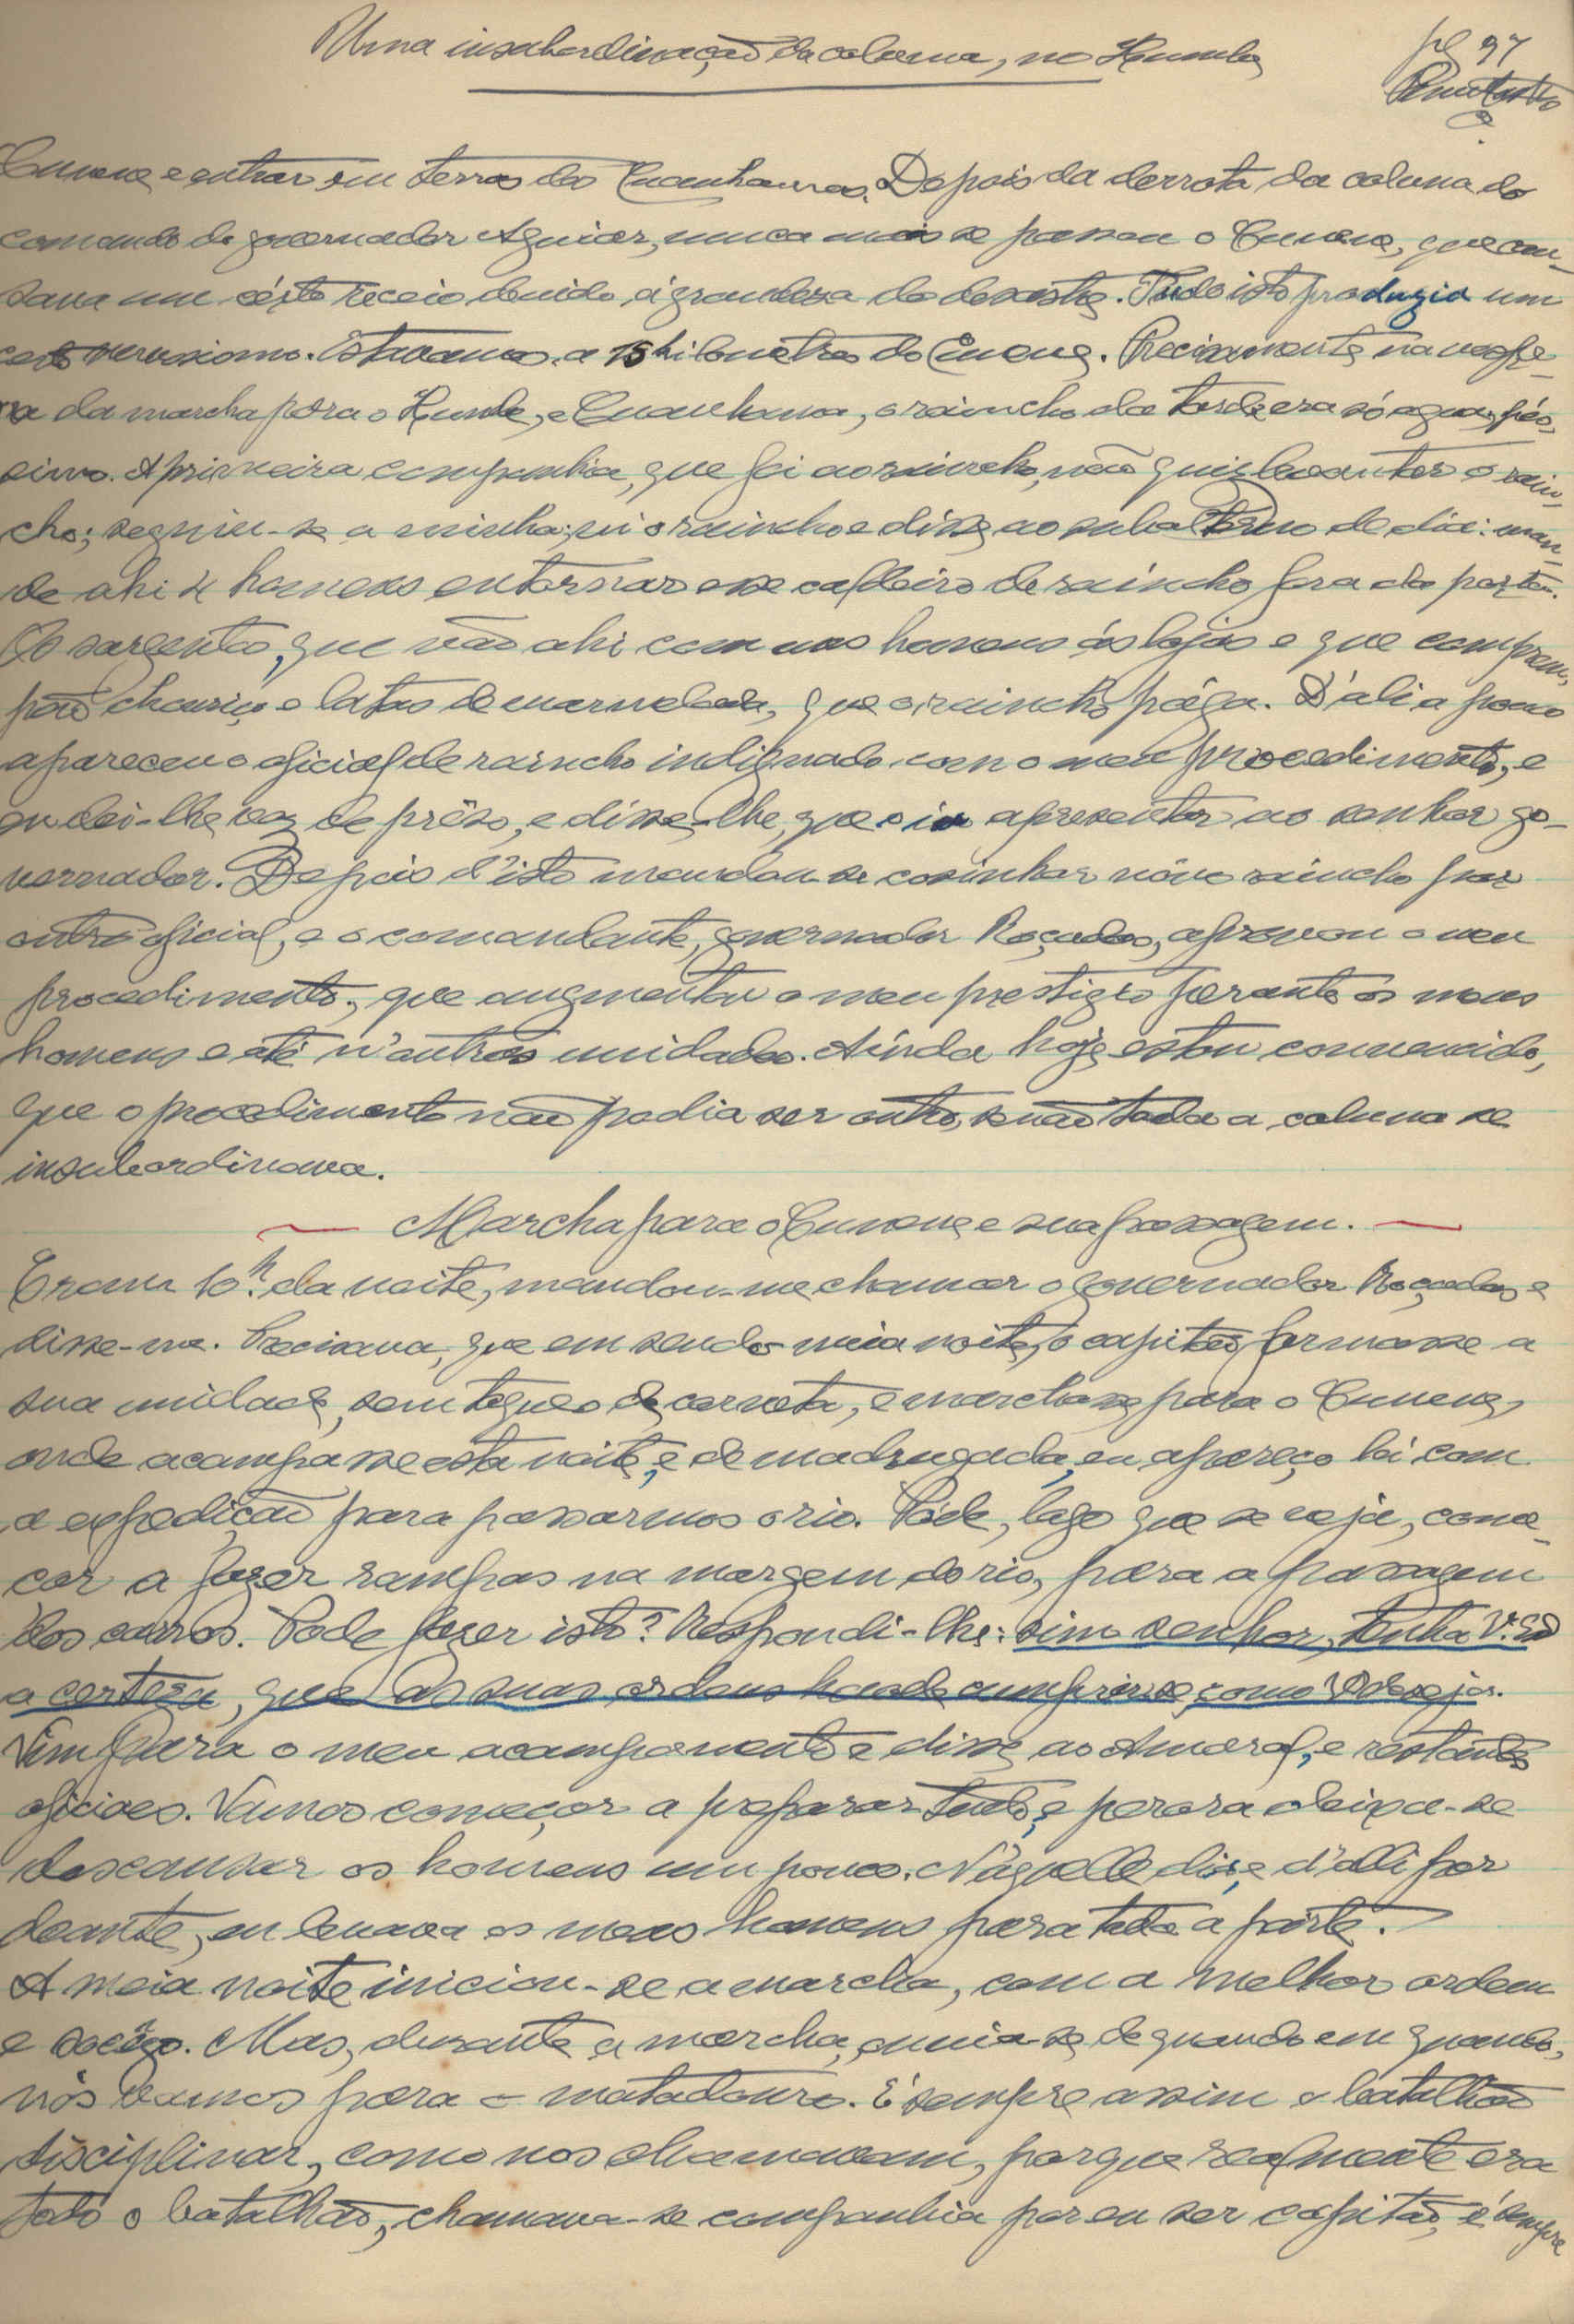 Uma insubordinação da coluna, no Humbe
pg 97
Cunene e entrar em terras dos Cuanhamas. Depois da derrota da coluna do
comando do governador Aguiar, nunca mais se passou o Cunene, que cau-
sava um cérto receio devido á grandeza do desastre. Tudo isto produzia um
certo nervosismo. Estavamos a 15 kilometros do Cunene. Precisamente na vespe-
ra da marcha para o Humbe, e Cuanhama, o rancho da tarde era só agua, pés-
simo. A primeira companhia, que foi ao rancho, não quiz levantar o ran-
cho; seguiu-se a minha; vi o rancho e disse ao subalterno de dia: man-
de ahi 4 homens entornar esse caldeiro de rancho fora da porta.
Os sargentos, que vão ahi com uns homens ás lojas e que comprem,
pão chouriço e latas de marmelada, que o rancho pága. D'ali a pouco
apareceu o oficial de rancho indignado com o meu procedimento, e
eu dei-lhe voz de prêso, e disse-lhe, que o ia apresentar ao senhor go-
vernador. Depois d'isto mandou-se cosinhar nôvo rancho por
outro oficial, e o comandante, governador Roçadas, aprovou o meu
procedimento, que augmentou o meu prestigio perante os meus
homens e até n'outras unidades. Ainda hoje estou convencido,
que o procedimento não podia ser outro, senão toda a coluna se
insubordinava.
Marcha para o Cunene e sua passagem.
Eram 10h. da noite, mandou-me chamar o governador Roçadas e
disse-me. Precisava, que em sendo meia noite, o capitão formasse a
sua unidade, sem toques de corneta, e marchasse para o Cunene,
onde acampasse esta noite, e de madrugada, eu apareço lá com
a expedição para passarmos o rio. Póde, logo que se veja, come-
çar a fazer rampas na margem do rio, para a passagem
dos carros. Pode fazer isto? Respondi-lhe: sim senhor, tenha V. Exª
a certeza, que as suas ordens hande cumprirse, como deseja.
Vim para o meu acampamento e disse ao Amaral, e restantes
oficiaes. Vamos começar a preparar tudo, e por ora deixa-se
descansar os homens um pouco. N'aquelle dia, e d'alli por
deante, eu levava os meus homens para toda a parte.
A meia noite iniciou-se a marcha, com a melhor ordem
e socêgo. Mas, durante a marcha, ouvia-se, de quando em quando,
nós vamos para o matadouro. É sempre assim o batalhão
disciplinar, como nos chamavam, porque realmente era
todo o batalhão, chamava-se companhia por eu ser capitão, é sempre